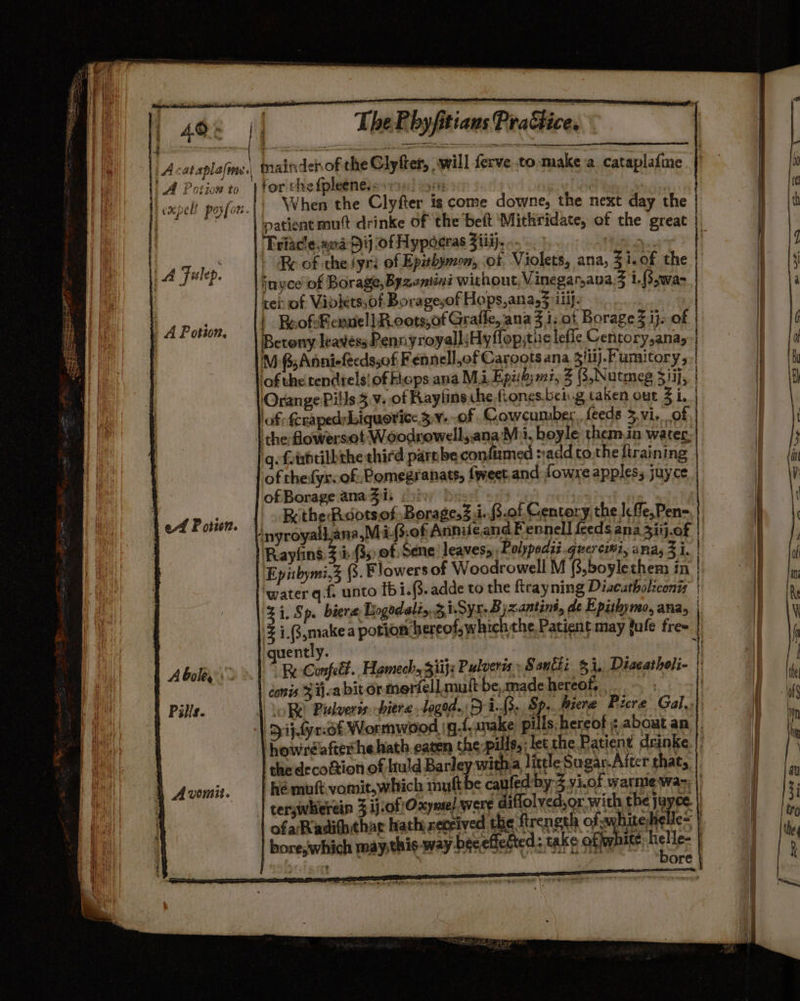 402 The Phyſitians Practice.
Acataplaſme. mainder of the Clyſter, will ſerve to make a cataplaſme
A Potion to for the ſpleene.
expell poyſon. When the Clyſter is come downe, the next day the
patient muſt drinke of the beſt Mithridate, of the great
Triacle, ana ℈ij of Hypocras ℥iiij.
A Julep. ℞ of the ſyr: of Epithymon, of Violets, ana, ℥i. of the
juyce of Borage, Byzantini without Vinegar, ana ℥ i.ſs, wa-
ter of Violets, of Borage, of Hops, ana, ℥ iiij.
A Potion. ℞ of Fennell Roots, of Graſſe, ana ℥ i. of Borage ℥ ij. of
Betony leaves, Pennyroyall, Hyſſop, the leſſe Centory, ana,
M ſs, Anniſeeds, of Fennell, of Caroots ana ʒiiij. Fumitory,
of the tendrels of Hops ana M i. Epithymi, ℥ ſs, Nutmeg ʒiij,
Orange Pills ʒ v. of Rayſins the ſtones being taken out ℥ i.
of ſcraped Liquorice ʒ v. of Cowcumber ſeeds ʒ vi. of
the flowers of Woodrowell, ana M i, boyle them in water,
q. ſ. untill the third part be conſumed : add to the ſtraining
of the ſyr. of Pomegranats, ſweet and ſowre apples, juyce
of Borage ana ℥i.
A Potion. ℞ the Roots of Borage, ℥ i. ſs. of Centory the leſſe, Pen-
nyroyall, ana, M i. ſs. of Anniſe and Fennell ſeeds ana ʒiij. of
Rayſins ℥ i. ſs, of Sene leaves, Polypodii quercini, ana, ℥ i.
Epithymi, ℥ ſs. Flowers of Woodrowell M ſs, boyle them in
water q.ſ. unto ℔ i. ſs. adde to the ſtrayning Diacatholiconis
℥ i. Sp. hieræ Logodali, ʒ i. Syr. Byzantini, de Epithymo, ana,
℥ i. ſs, make a potion hereof, which the Patient may uſe fre-
quently.
A bole, ℞ Confect. Hamech, ʒiij; Pulveris Sancti ʒ i. Diacatholi-
conis ℥ ij. a bit or morſell muſt be made hereof.
Pills. ℞ Pulveris hieræ logod. ℈ i. ſs. Sp. hieræ Picræ Gal.
℈ij. ſyr. of Wormwood q.ſ. make pills hereof : about an
howre after he hath eaten the pills, let the Patient drinke
the decoction of huld Barley with a little Sugar. After that,
A vomit. he muſt vomit, which muſt be cauſed by ℥ vi. of warme wa-
ter, wherein ℥ ij. of Oxymel were diſſolved, or with the juyce
of a Radiſh that hath received the ſtrength of white helle-
bore, which may this way be effected : take of white helle-
bore